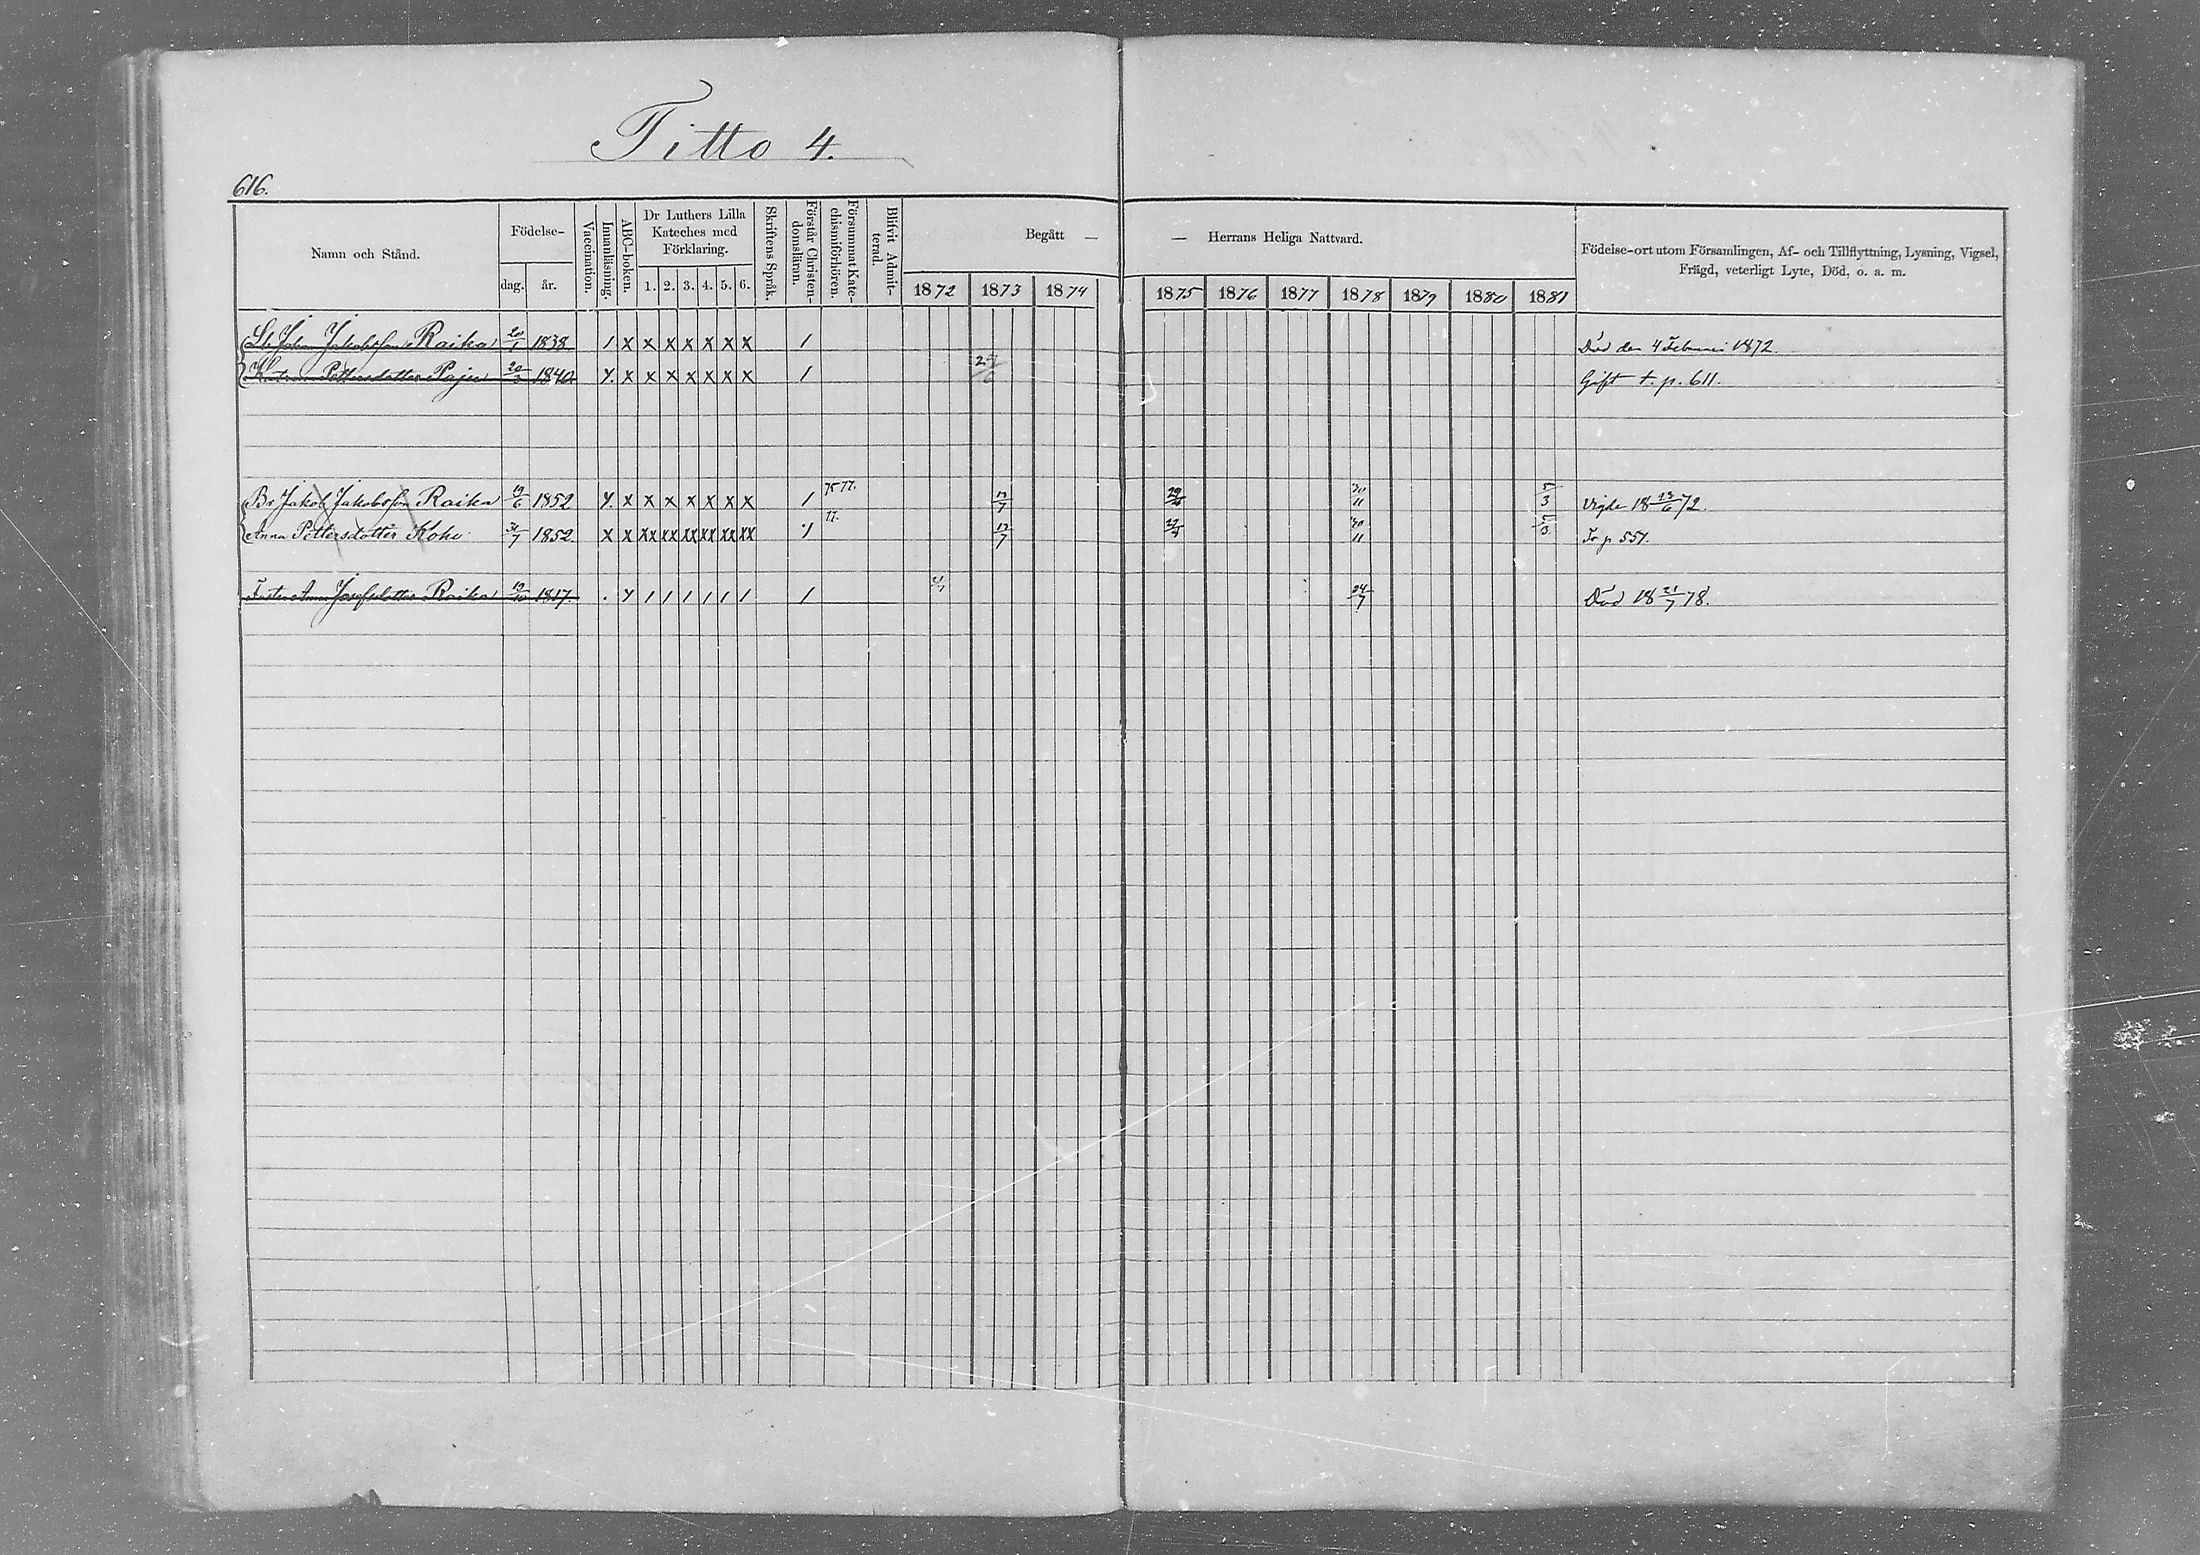 Titto 4.
616.
Namn och Stånd.
Födelse-
dag.
år.
Vaccination.
Innanläsning.
ABC-boken.
Dr Luthers Lilla
Kateches med
Förklaring.
1. 2. 3. 4. 5. 6.
Skriftens Språk.
Förstår Christen-
domsläran.
Försummat Kate-
chismiförhören.
Blifvit Admit-
terad.
Begått — — Herrans Heliga Nattvard.
1872 1873 1874 1875 1876 1877 1878 1879 1880 1881
Födelse-ort utom Församlingen, Af- och Tillflyttning, Lysning, Vigsel,
Frägd, veterligt Lyte, Död, o. a. m.
Johan Jakobsson Raika 20/1 1838 1 x x x x x x x 1 Död den 4 Februari 1872.
Pettersdotter Paju 1840 y. x x x x x x x 1 Gift t. p. 611.
Br. Jakob Jakobsson Raika 19/6 1852 y. x x x x x x x 1 75 77. 13/7 30/11 5/3 Vigde 18 23/6 72.
Anna Pettersdotter Koho 1852 x x xx xx xx xx xx xx 1 77. 13/7 30/11 5/3 Fr p 551.
Faster Anna Josefsdotter Raika 1817. y 1 1 1 1 1 1 1 24/7 Död 18 21/7 78.